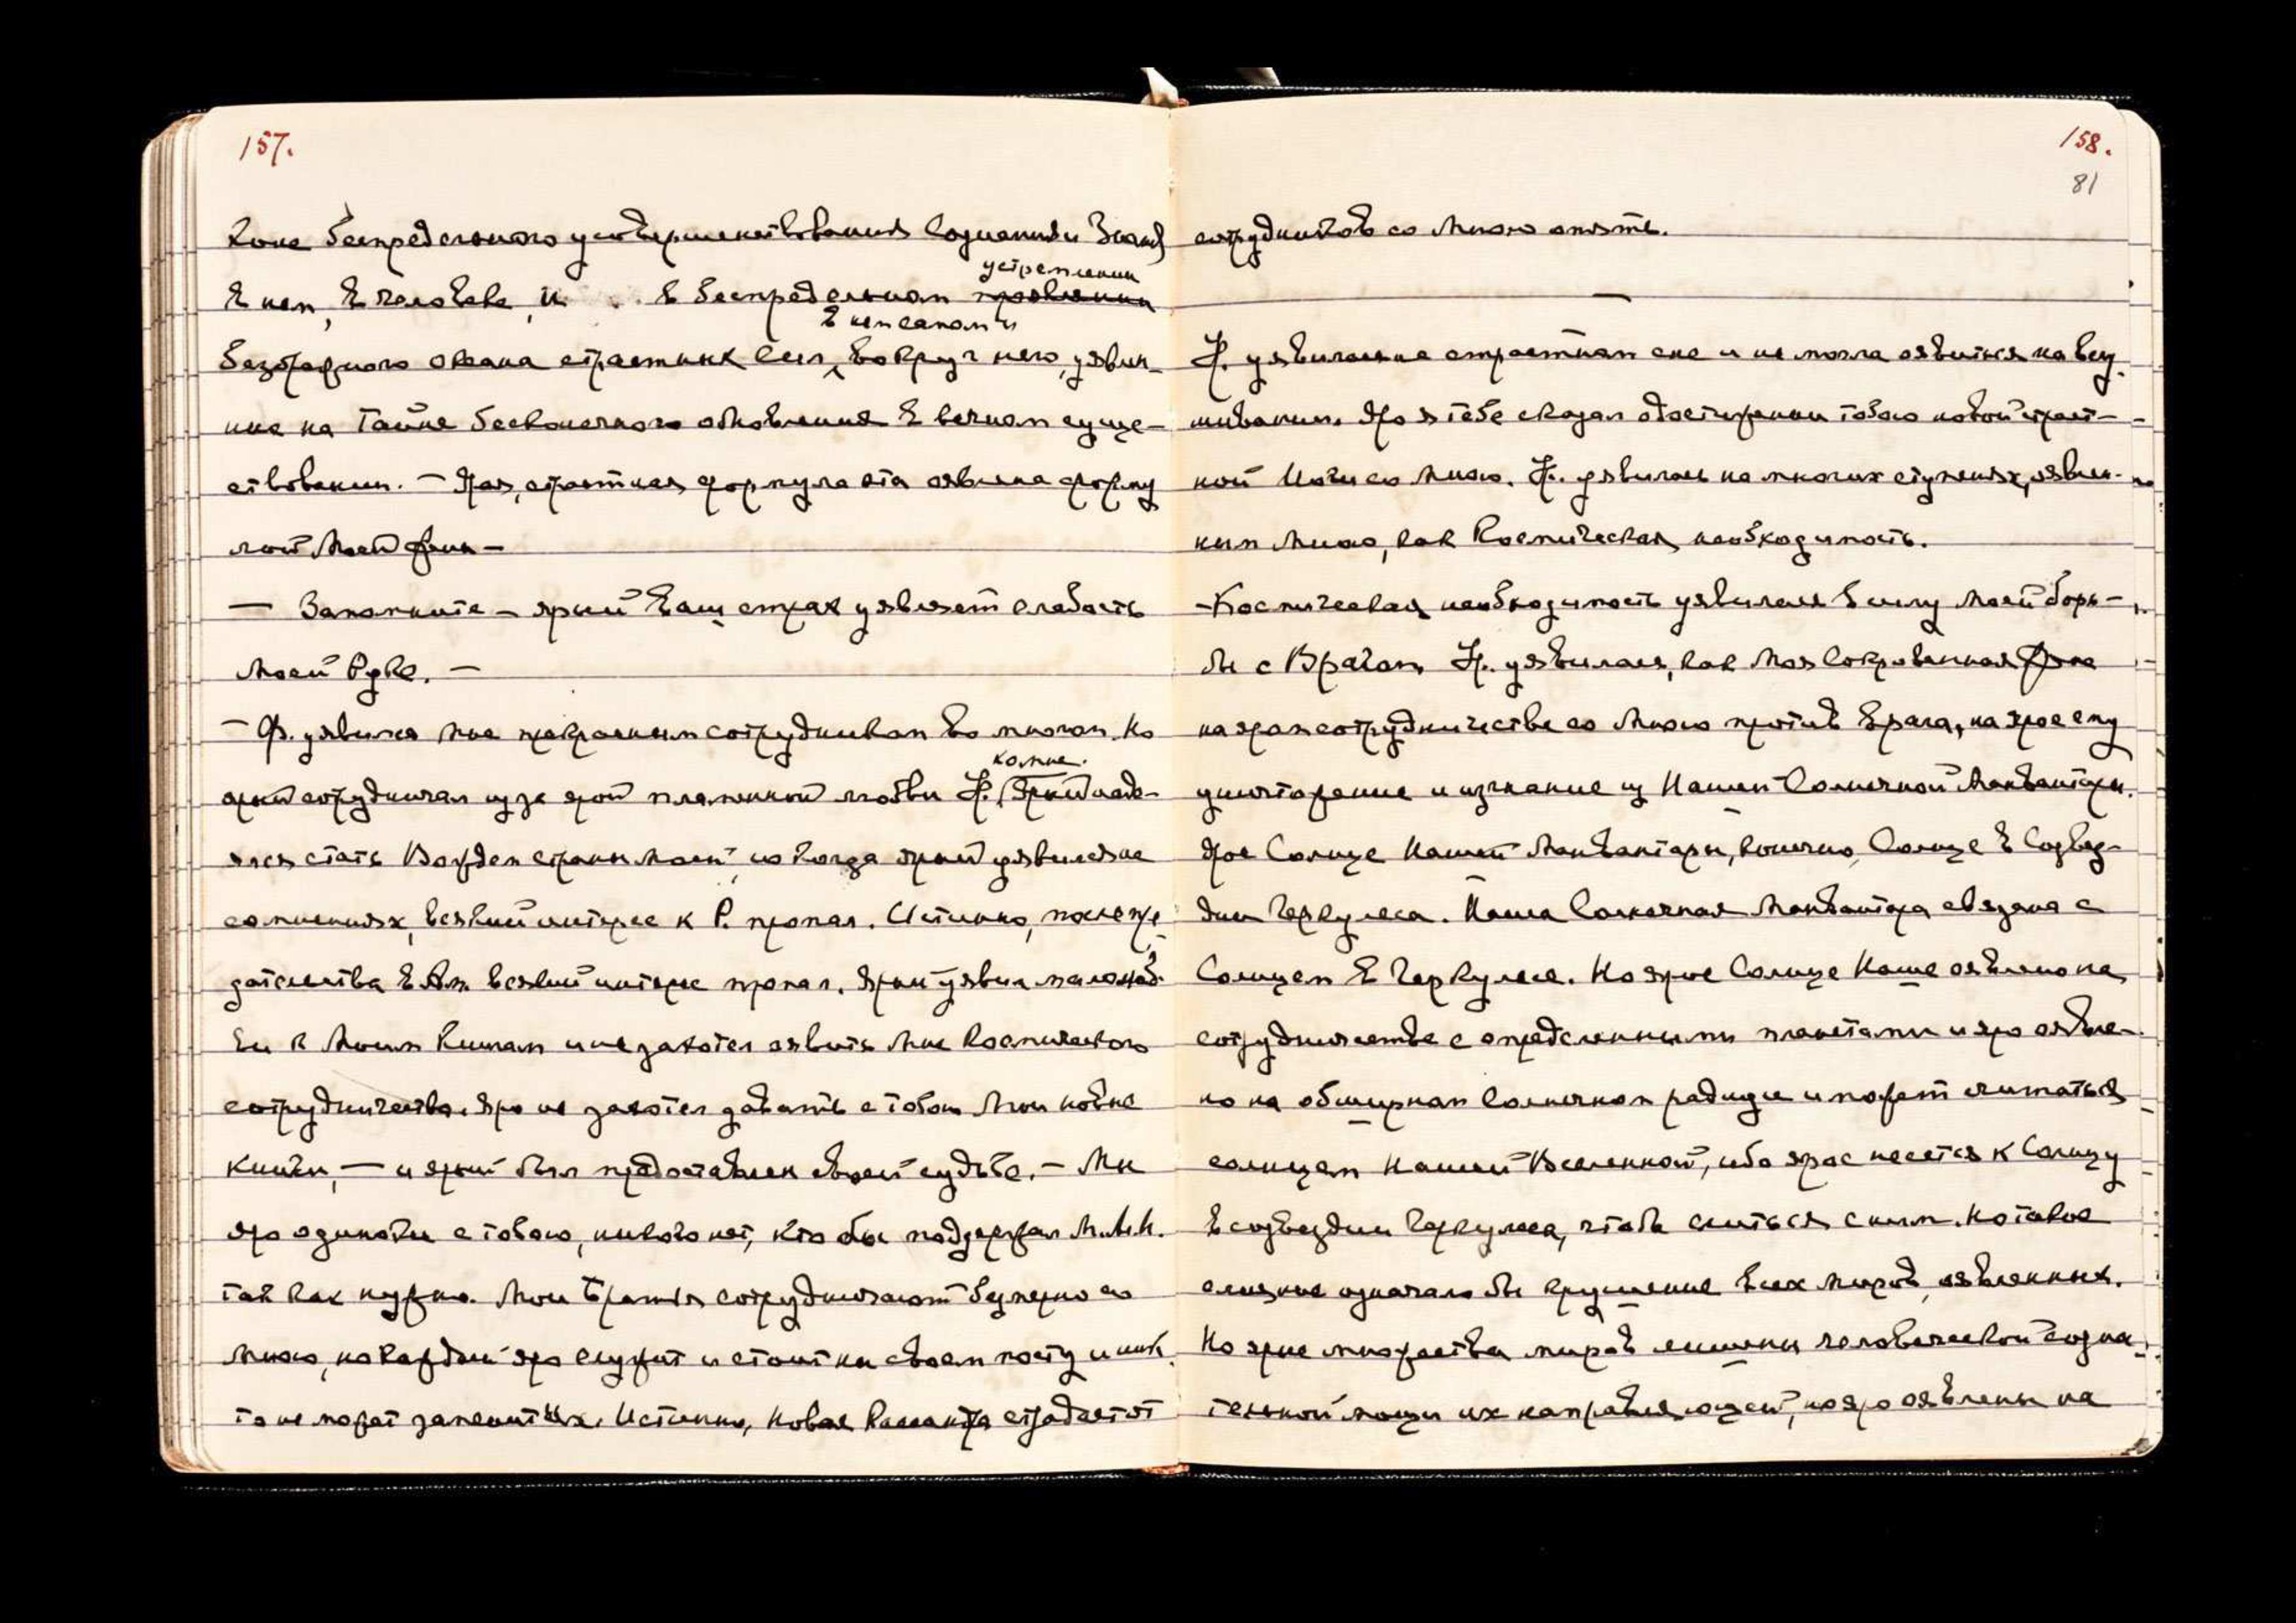 157.
коне беспредельного усовершенствования сознания и Знания
устремлении
в нем, в человеке, и в беспредельном проявлении
в нем самом и
безбрежного океана страстных сил, вокруг него, уявлен-
ных на Тайне бесконечного обновления в вечном суще-
ствовании. — Ярая, страстная формула эта явлена форму
лой Моей
— Запомните — ярый Ваш страх уявляет слабость
Моей Руке. —
— Ф. уявился мне прекрасным сотрудником во многом. Но
ко мне.
ярый сотрудничал из за ярой пламенной любви Н. Ярый наде-
ялся стать Вождем страны Моей, но когда ярый уявился на
сомнениях, всякий интерес к Р. пропал. Истинно, после пре
дательства в Ам. всякий интерес пропал. Ярый уявил мало люб-
ви к Моим Книгам и не захотел явить Мне Космического
сотрудничества. Яро не захотел давать с тобою Мои новые
книги, — и ярый был предоставлен своей судьбе. — Мы
яро одиноки с тобою, никого нет, кто бы поддержал М.А.И.
так как нужно. Мои Братья сотрудничают безмерно со
Мною, но каждый яро служит и стоит на своем посту и ник-
то не может заменить их. Истинно, Новая Рамакришна страдает от
158.
81
сотрудников со Мною опять.
—
Н. уявилась на страстном сне и не могла явиться на выслу-
шивании. Яро я тебе сказал о достижении тобою новой страст-
ной Мощи со Мною. Н. уявилась на многих ступенях, явлен-
ным Мною, как Космическая необходимость.
— Космическая необходимость уявилась в силу Моей борь-
бы с Врагом. Н. уявилась, как Моя Сокровенная Жена
на яром сотрудничестве со Мною против Врага, на ярое ему
уничтожение и изгнание из Нашей Солнечной Манвантары.
Ярое Солнце Нашей Манвантары, конечно, Солнце в Созвез-
дии Геркулеса. Наша Солнечная Манвантара связана с
Солнцем в Геркулесе. Но ярое Солнце Наше явлено на
сотрудничестве с определенными планетами и яро явле-
но на обширном Солнечном радиусе и может считаться
солнцем Нашей Вселенной, ибо ярое несется к Солнцу
в созвездии Геркулеса, чтобы слиться с ним. Но такое
слияние означало бы крушение всех миров, явленных.
Но ярые множества миров лишены человеческой созна-
тельной мощи их направляющей, но яро явлены на